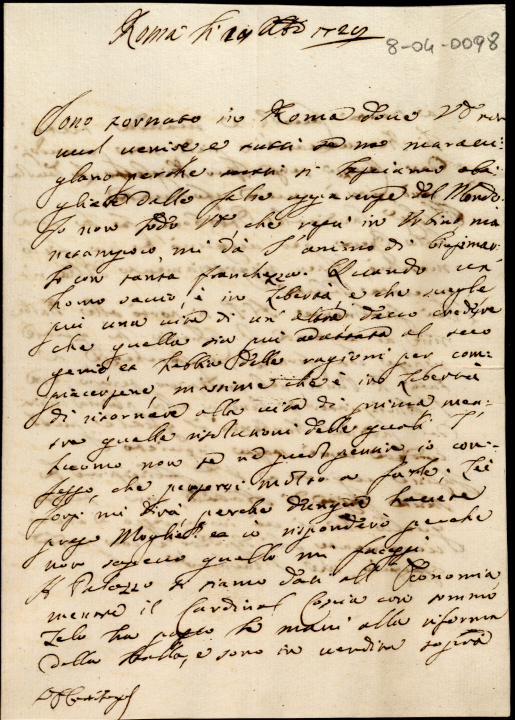 Roma li 29 Xbre 1729
8-04-0098
Sono tornato in Roma dove VS non
vuol venire e tutti se ne maravi-
gliano perche tutti si lasciano abba
gliare dalle false apparenze del Mondo.
Io non lodo VS, che resti in Urbino ma
ne tampoco mi dà l'animo di biasimar-
lo con tanta franchezza. Quando un
homo savio, è in Libertà, e che sceglie
più una vita di un' altra devo credere
che quella sia più adattata al suo
genio et habbia delle ragioni per com-
piacersene, massime che è in Libertà
di ritornare alla vita di prima men-
tre quelle risolutioni delle quali l'
huomo non se ne può pentire io con-
fesso, che penserei molto a farle; Lei
forsi mi dirà perche dunque havete
preso Moglie? et io risponderò perche
non sapevo quello mi facessi
A Palazzo si siamo dati all' Economia
mentre il Cardinal Coscia con sommo
Zelo ha posto le mani alla riforma
della stalla, e sono in vendita sopra